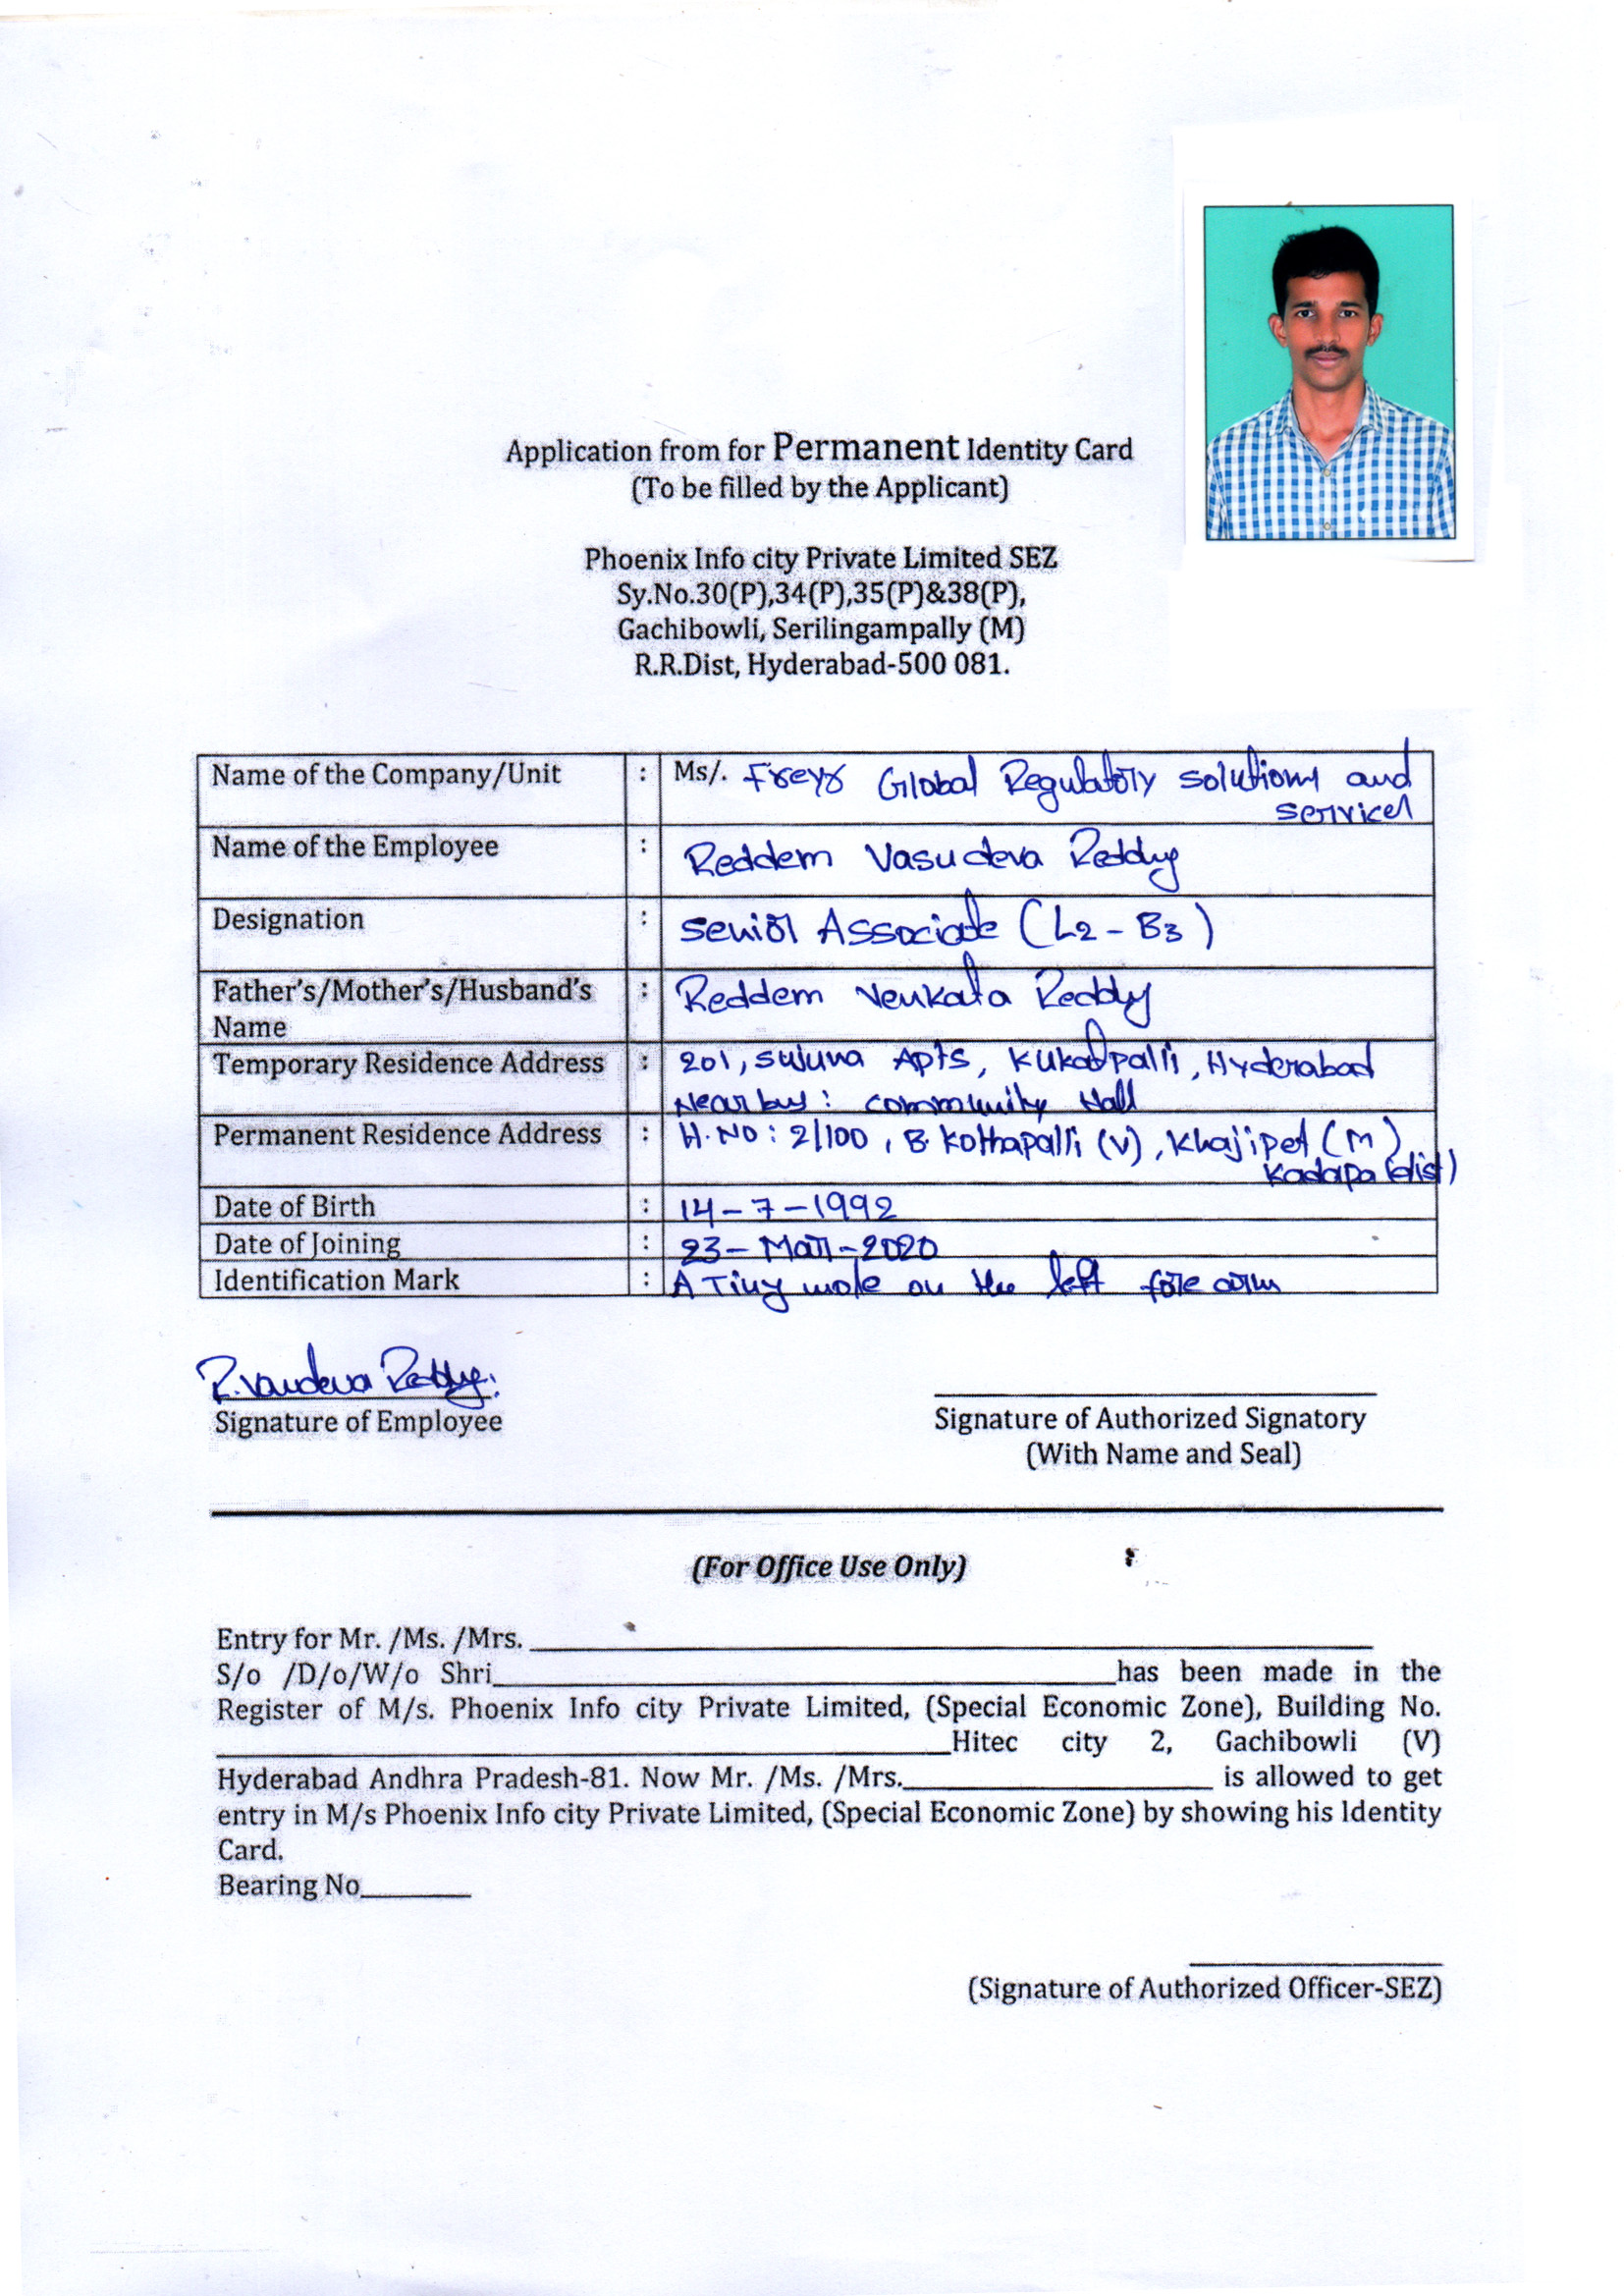 Application from for Permanent Identity Card
(To be filled by the Applicant)
Phoenix Info city Private Limited SEZ
Sy.No.30(P),34(P),35(P)&38(P),
Gachibowli, Serilingampally (M)
R.R.Dist, Hyderabad-500 081.
Name of the Company/Unit : Ms/. Freyr Global Regulatory solutions and
services
Name of the Employee : Reddem Vasudeva Reddy
Designation : Senior Associate (L2-B3)
Father's/Mother's/Husband's : Reddem Venkata Reddy
Name
Temporary Residence Address : 201, Sujuna Apts, Kukatpalli, Hyderabad
Near by: community Hall
Permanent Residence Address : H.NO: 2/100, B. Kothapalli (V), Khajipet (M)
Kadapa (dist)
Date of Birth : 14-7-1992
Date of Joining : 23-Mar-2020
Identification Mark : A Tiny mole on the left fore arm
R. Vasudeva Reddy.
Signature of Employee
Signature of Authorized Signatory
(With Name and Seal)
(For Office Use Only)
Entry for Mr. /Ms. /Mrs.
S/o /D/o/W/o Shri has been made in the
Register of M/s. Phoenix Info city Private Limited, (Special Economic Zone), Building No.
Hitec city 2, Gachibowli (V)
Hyderabad Andhra Pradesh-81. Now Mr. /Ms. /Mrs. is allowed to get
entry in M/s Phoenix Info city Private Limited, (Special Economic Zone) by showing his Identity
Card.
Bearing No
(Signature of Authorized Officer-SEZ)